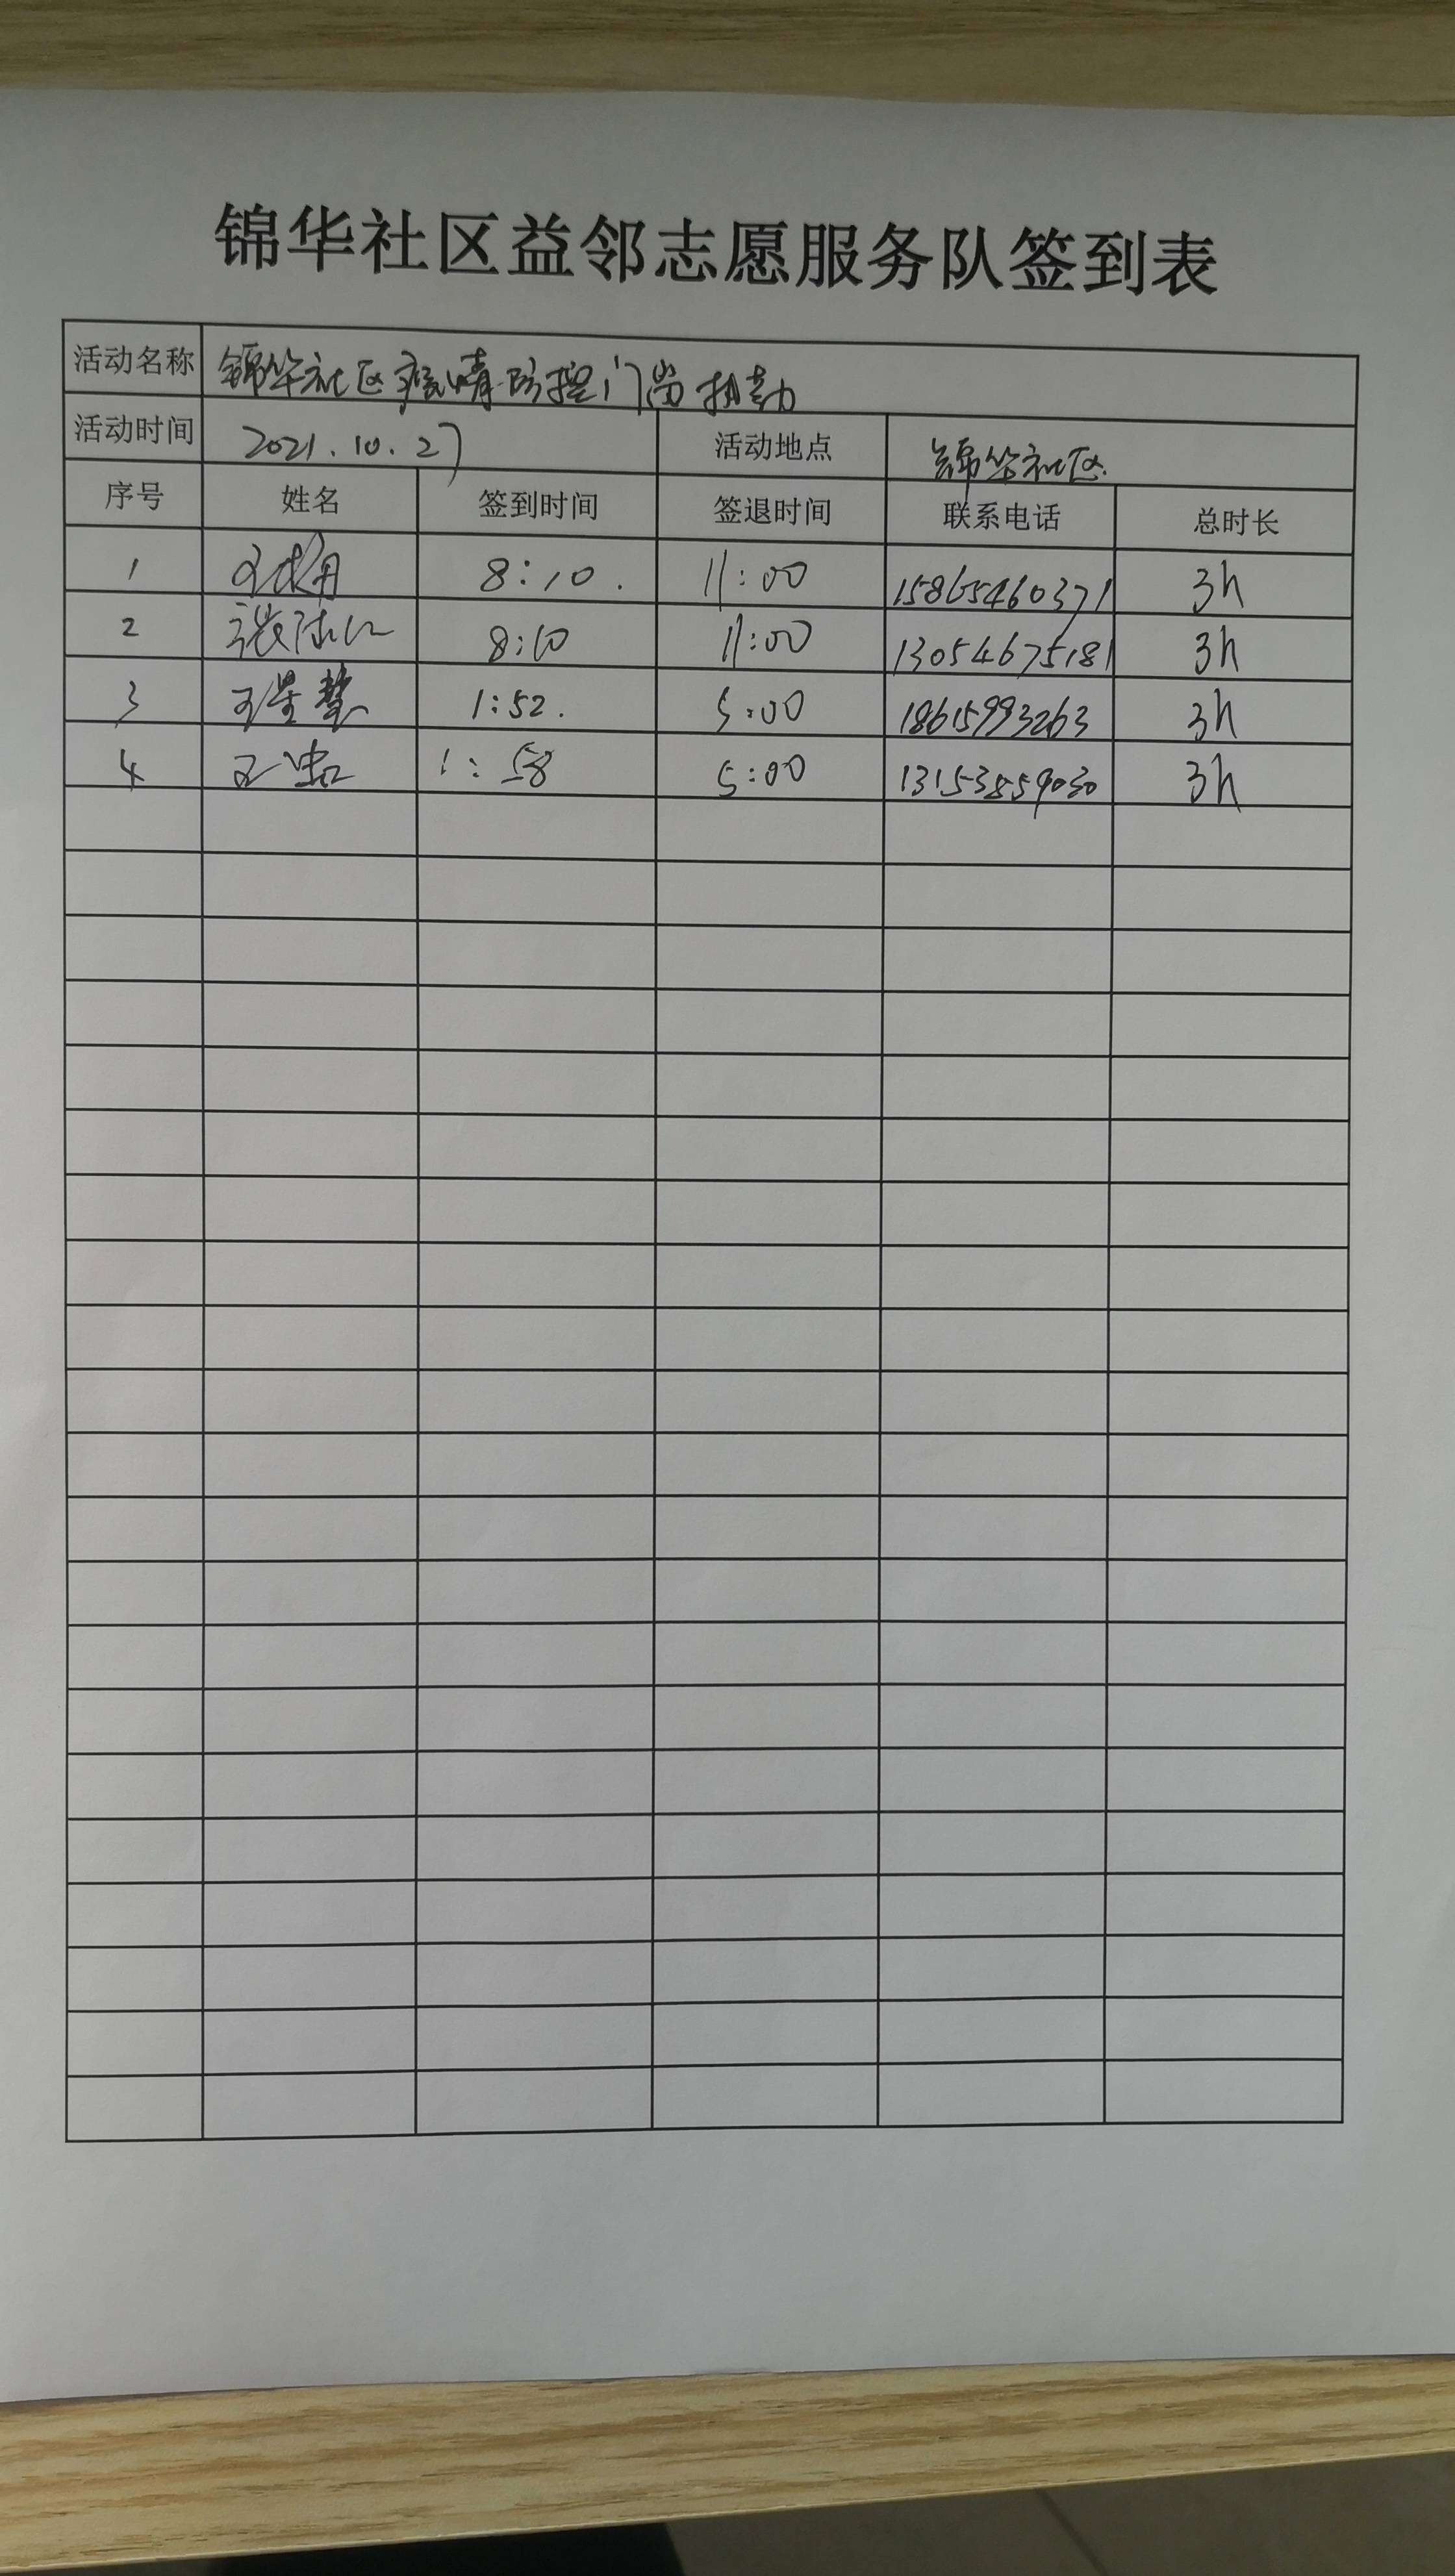 锦华社区益邻志愿服务队签到表
活动名称 锦华社区疫情防控门岗执勤
活动时间 2021.10.27 活动地点 锦华社区
序号 姓名 签到时间 签退时间 联系电话 总时长
1 8:10. 11:00 15865460371 3h
2 张 8:10 11:00 13054675181 3h
3 王星慧 1:52. 5:00 18615993263 3h
4 王 1:58 5:00 13153859030 3h